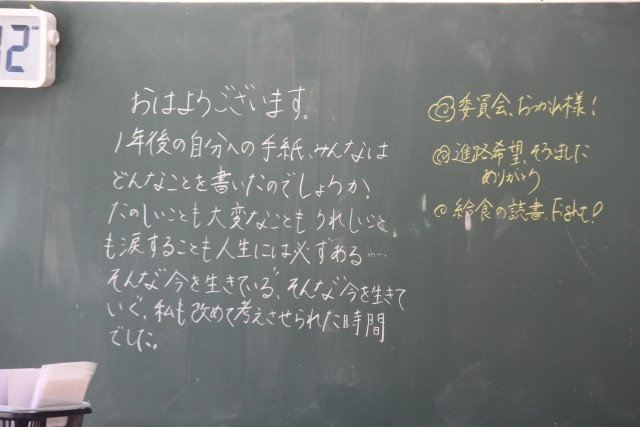 おはようございます。
1年後の自分への手紙、みんなは
どんなことを書いたのでしょうか?
たのしいことも大変なこともうれしいこと
も涙することも人生には必ずある……
そんな"今を生きている"、そんな"今を生きて
いく"、私も改めて考えさせられた時間
でした。
@委員会、おつかれ様!
@進路希望、そろいました
ありがとう
@給食の読書、Fight!
2